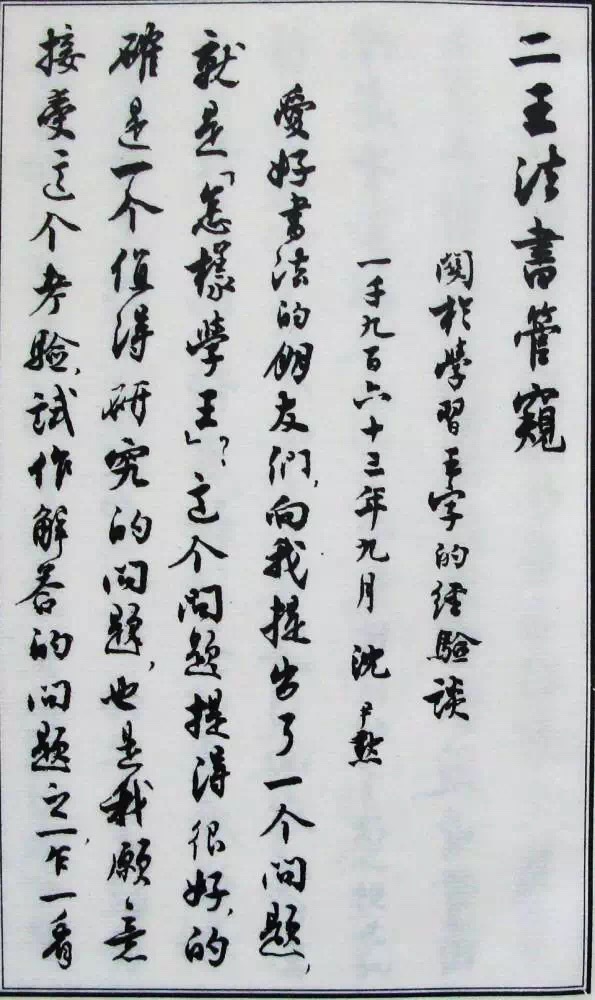 二王法書管窺
関扵學習王字的經驗談
一千九百六十三年九月 沈尹默
愛好書法的朋友們,向我提出了一个問題,
就是「怎樣學王」?这个問題提得很好,的
確是一个值得研究的問題,也是我願意
接受这个考驗,試作解答的問題之一,乍一看